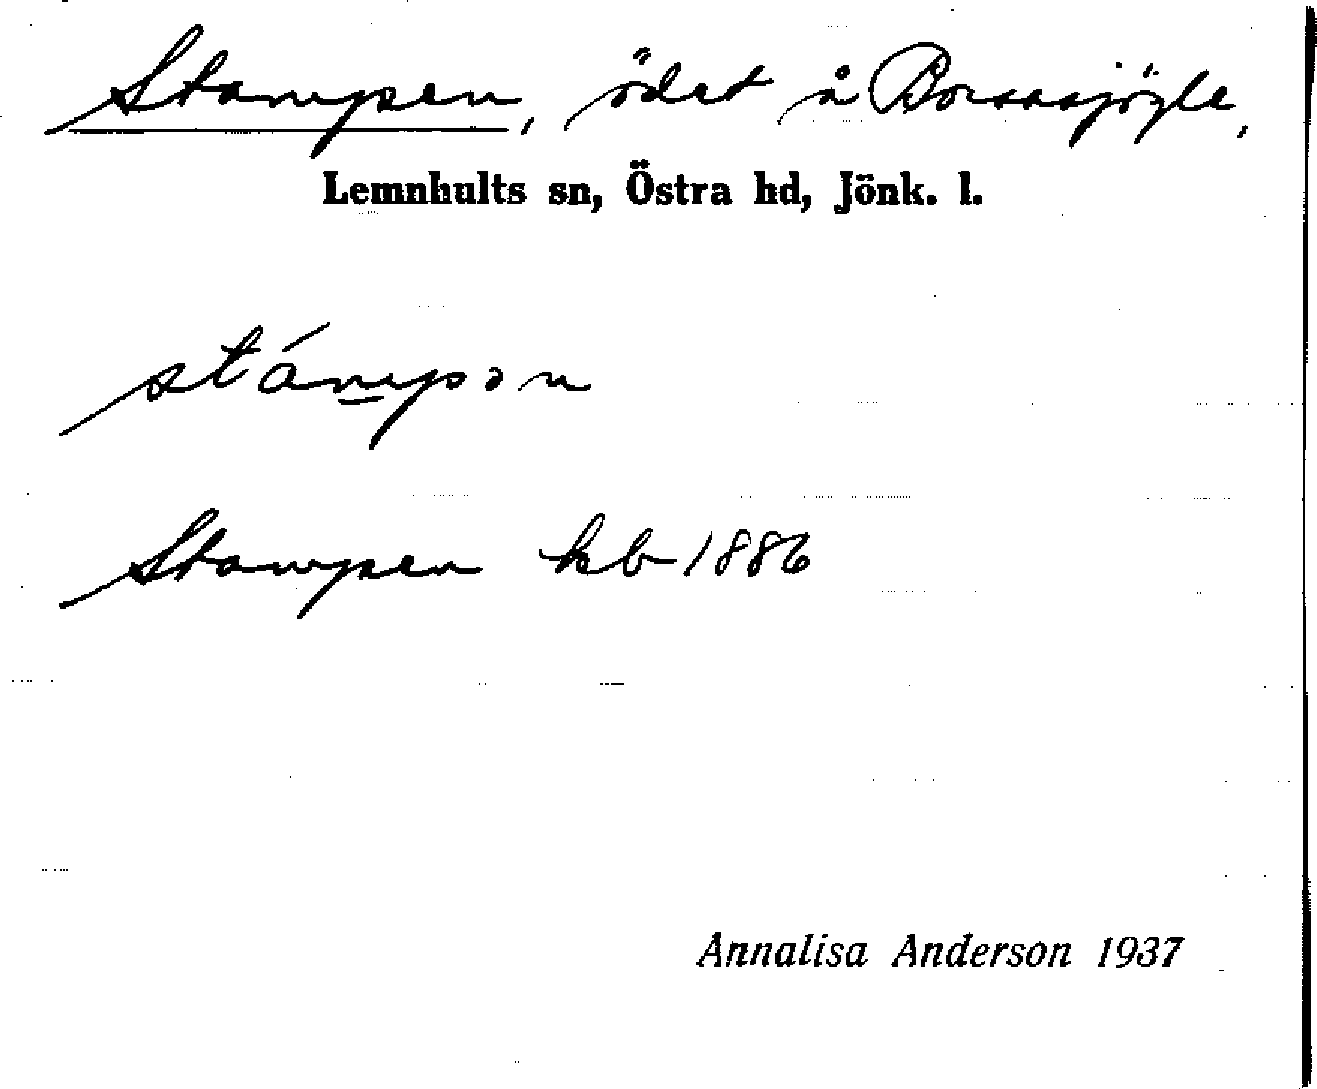 Stampen, ödet å Borrasjögle,
Lemnhults sn, Östra hd, Jönk. l.
stám̲pən
Stampen hb 1886
Annalisa Anderson 1937